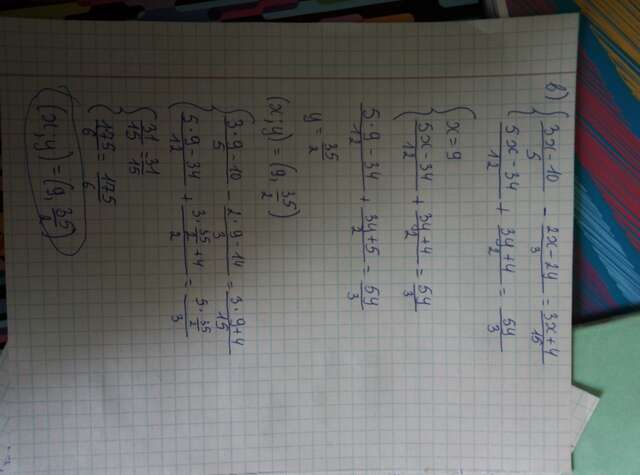 в)
{ (3x-10)/5 - (2x-24)/3 = (3x+4)/15
(5x-34)/12 + (3y+4)/2 = 5y/3
{ x=9
(5x-34)/12 + (3y+4)/2 = 5y/3
(5·9-34)/12 + (3y+5)/2 = 5y/3
y = 35/2
(x;y) = (9, 35/2)
{ (3·9-10)/5 - (2·9-14)/3 = (3·9+4)/15
(5·9-34)/12 + (3·35/2+4)/2 = (5·35/2)/3
{ 31/15 = 31/15
175/6 = 175/6
(x,y) = (9, 35/2)